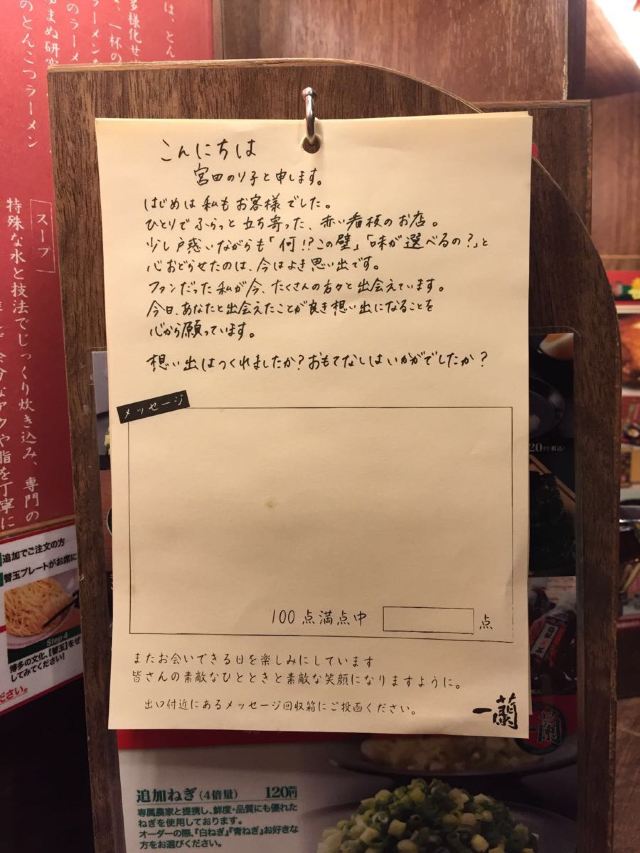 こんにちは
宮田のり子と申します。
はじめは私もお客様でした。
ひとりでふらっと立ち寄った、赤い看板のお店。
少し戸惑いながらも「何!?この壁」「味が選べるの?」と
心おどらせたのは、今はよき思い出です。
ファンだった私が今、たくさんの方々と出会えています。
今日、あなたと出会えたことが良き想い出になることを
心から願っています。
想い出はつくれましたか?おもてなしはいかがでしたか?
メッセージ
100点満点中
点
またお会いできる日を楽しみにしています
皆さんの素敵なひとときと素敵な笑顔になりますように。
出口付近にあるメッセージ回収箱にご投函ください。
一蘭
スープ
特殊な水と技法でじっくり炊き込み、専門の
のとんこつラーメン
追加でご注文の方
替玉プレートがお席に
Step.4
博多の文化、【替玉】をぜ
してみてください!
ださい。
追加ねぎ(4倍量) 120円
専属農家と提携し、鮮度・品質にも優れた
ねぎを使用しております。
オーダーの際、『白ねぎ』『青ねぎ』お好きな
方をお選びください。